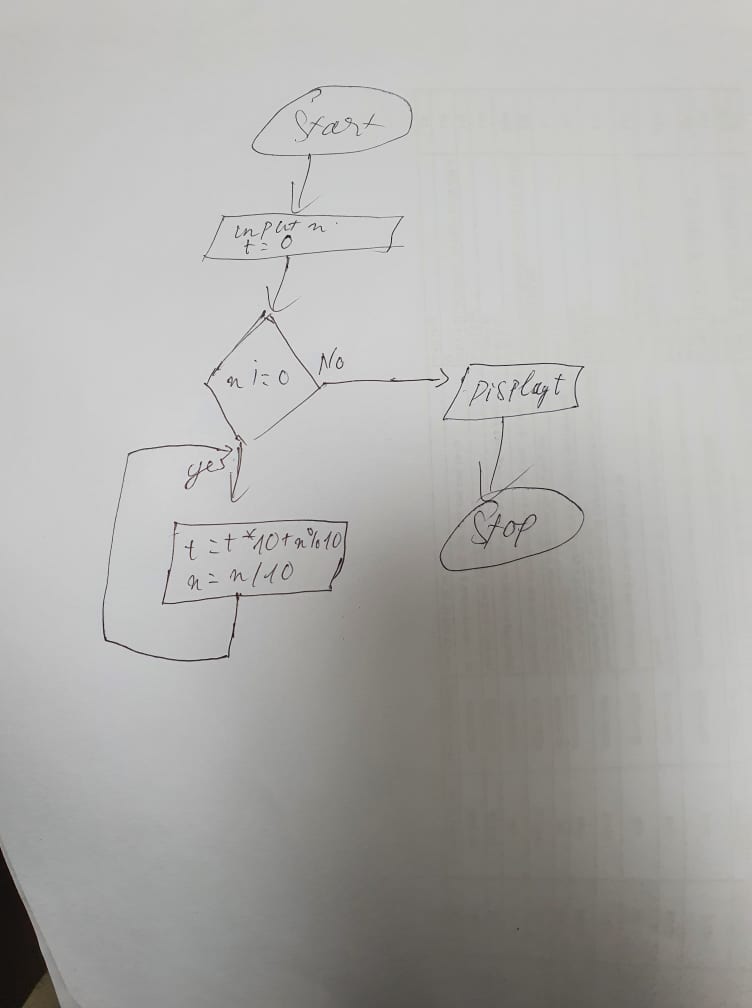 Start
input n.
t = 0
n i= 0
No
Display t
yes
Stop
t = t * 10 + n % 10
n = n / 10